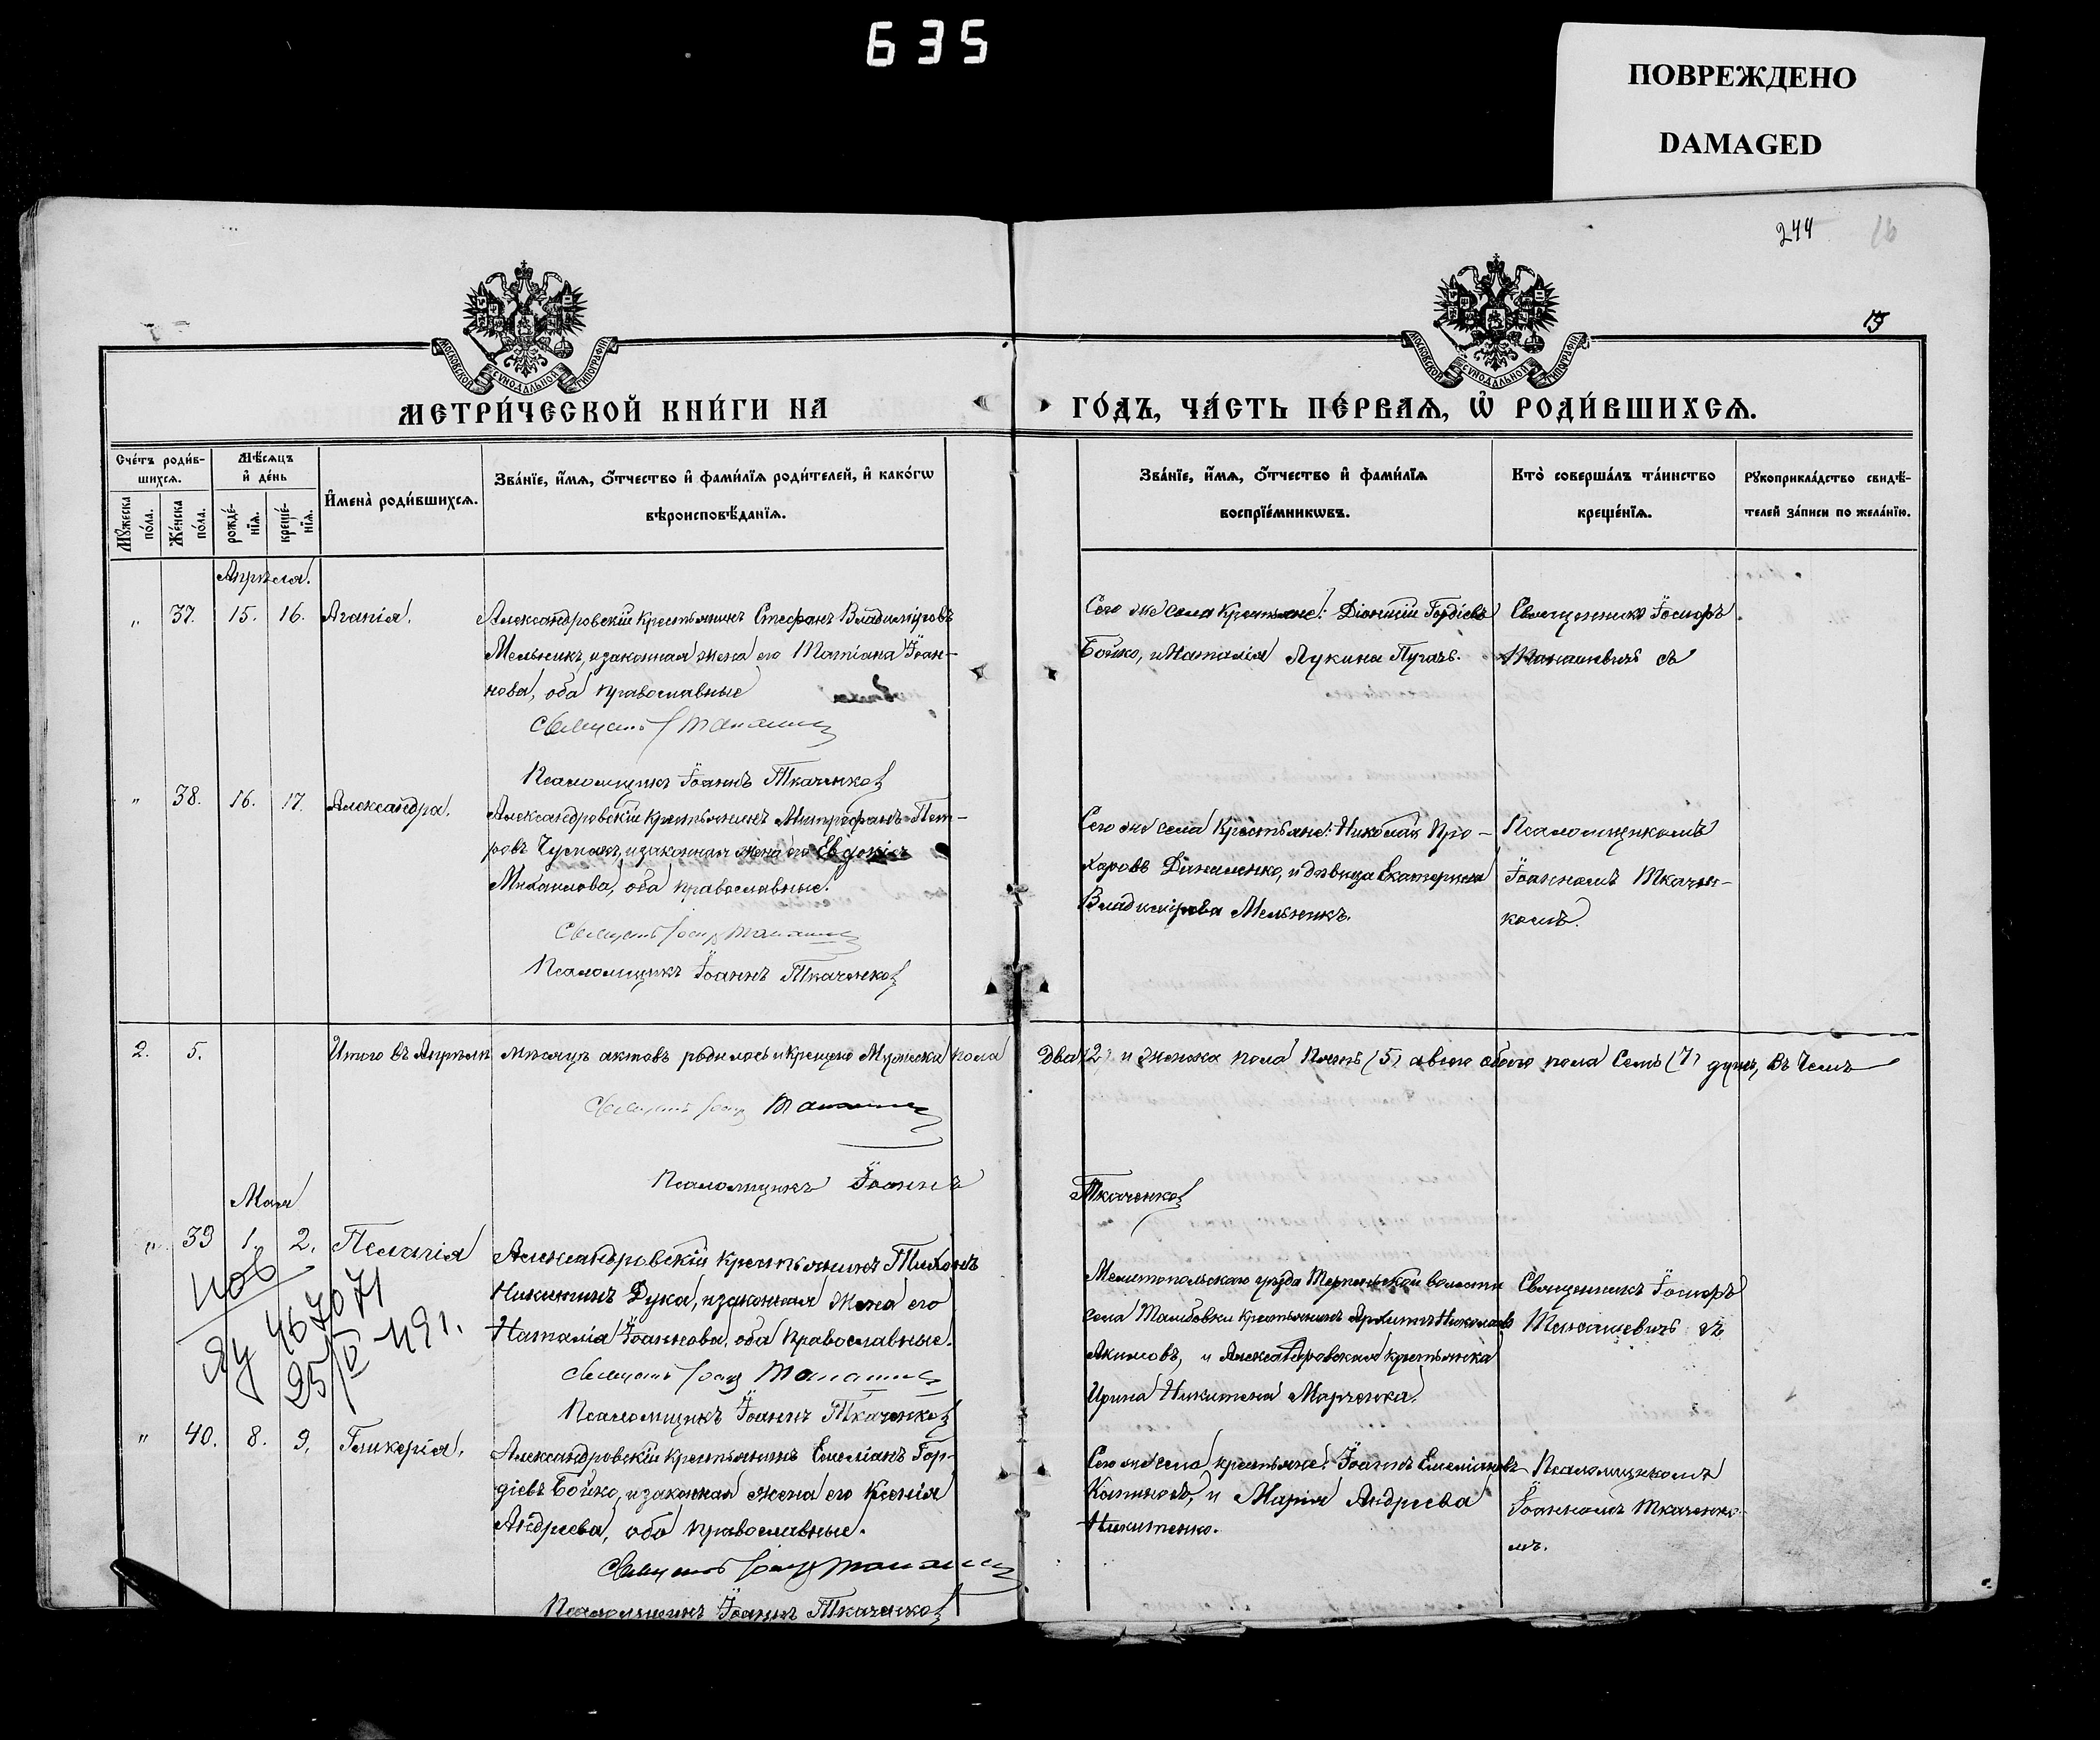 635
ПОВРЕЖДЕНО
DAMAGED
244
16
15
МОСКОВСКОЙ СѴНОДАЛЬНОЙ ТИПОГРАФІИ
МОСКОВСКОЙ СѴНОДАЛЬНОЙ ТИПОГРАФІИ
МЕТРИ́ЧЕСКОЙ КНИ́ГИ НА
ГО́ДЪ, ЧА́СТЬ ПЕ́РВАѦ, Ѡ҆ РОДИ́ВШИХСѦ.
Сче́тъ роди́в-
шихсѧ.
Мꙋ́жеска по́ла.
Же́нска по́ла.
Мѣ́сѧцъ
и҆ де́нь
рожде́-нїѧ.
креще́-нїѧ.
И҆мена̀ роди́вшихсѧ.
Зва́нїе, и҆́мѧ, о҆́тчество и҆ фами́лїѧ роди́телей, и҆ како́гѡ
вѣроисповѣ́данїѧ.
Зва́нїе, и҆́мѧ, о҆́тчество и҆ фами́лїѧ
воспрїе́мникѡвъ.
Кто̀ соверша́лъ та́инство
креще́нїѧ.
Рꙋкоприкла́дство свидѣ́-
телей за́писи по жела́нїю.
Апрѣля.
" 37. 15. 16. Агапія.
Александровскій крестьянинъ Стефанъ Владиміровъ
Мельникъ, и законная жена его Татіана Іоан-
нова, оба православные
Псаломщикъ Іоаннъ Ткаченко
Сего же села крестьяне: Діонисій Гордіевъ
Бойко, и Наталія Лукина Пугачъ.
Священникъ Іосифъ
съ
" 38. 16. 17. Александра.
Александровскій крестьянинъ Митрофанъ Пет-
ровъ и законная жена его Евдокія
Михаилова, оба православные.
Псаломщикъ Іоаннъ Ткаченко
Сего же села крестьяне: Николай Про-
хоровъ Даниленко, и дѣвица Екатерина
Владимірова Мельникъ.
Псаломщикомъ
Іоанномъ Ткачен-
комъ.
2. 5. Итого въ Апрѣлѣ мѣсяцѣ актовъ родилось и крещено Мужеска пола Два (2) и женска пола Пять (5) а всего обоего пола Семь (7) душъ, Въ Чемъ
Псаломщикъ Іоаннъ Ткаченко
Мая
" 39 1. 2. Пелагія
Александровскій крестьянинъ Тихонъ
Никитинъ Дука, и законная жена его
Наталія Іоаннова, оба православные.
Псаломщикъ Іоаннъ Ткаченко
Мелитопольскаго уѣзда волости
села крестьянинъ Николаевъ
Акимовъ, и Александровская крестьянка
Ирина Никитена Марченко.
Священникъ Іосифъ
съ
467071
25/IV 49 г.
" 40. 8. 9. Гликерія.
Александровскій крестьянинъ Емеліанъ Гор-
діевъ Бойко, и законная жена его Ксенія
Андреева, оба православные.
Псаломщикъ Іоаннъ Ткаченко
Сего же села крестьяне: Іоаннъ Емеліановъ
и Марія Андреева
Никитенко.
Псаломщикомъ
Іоанномъ Ткаченко-
мъ.